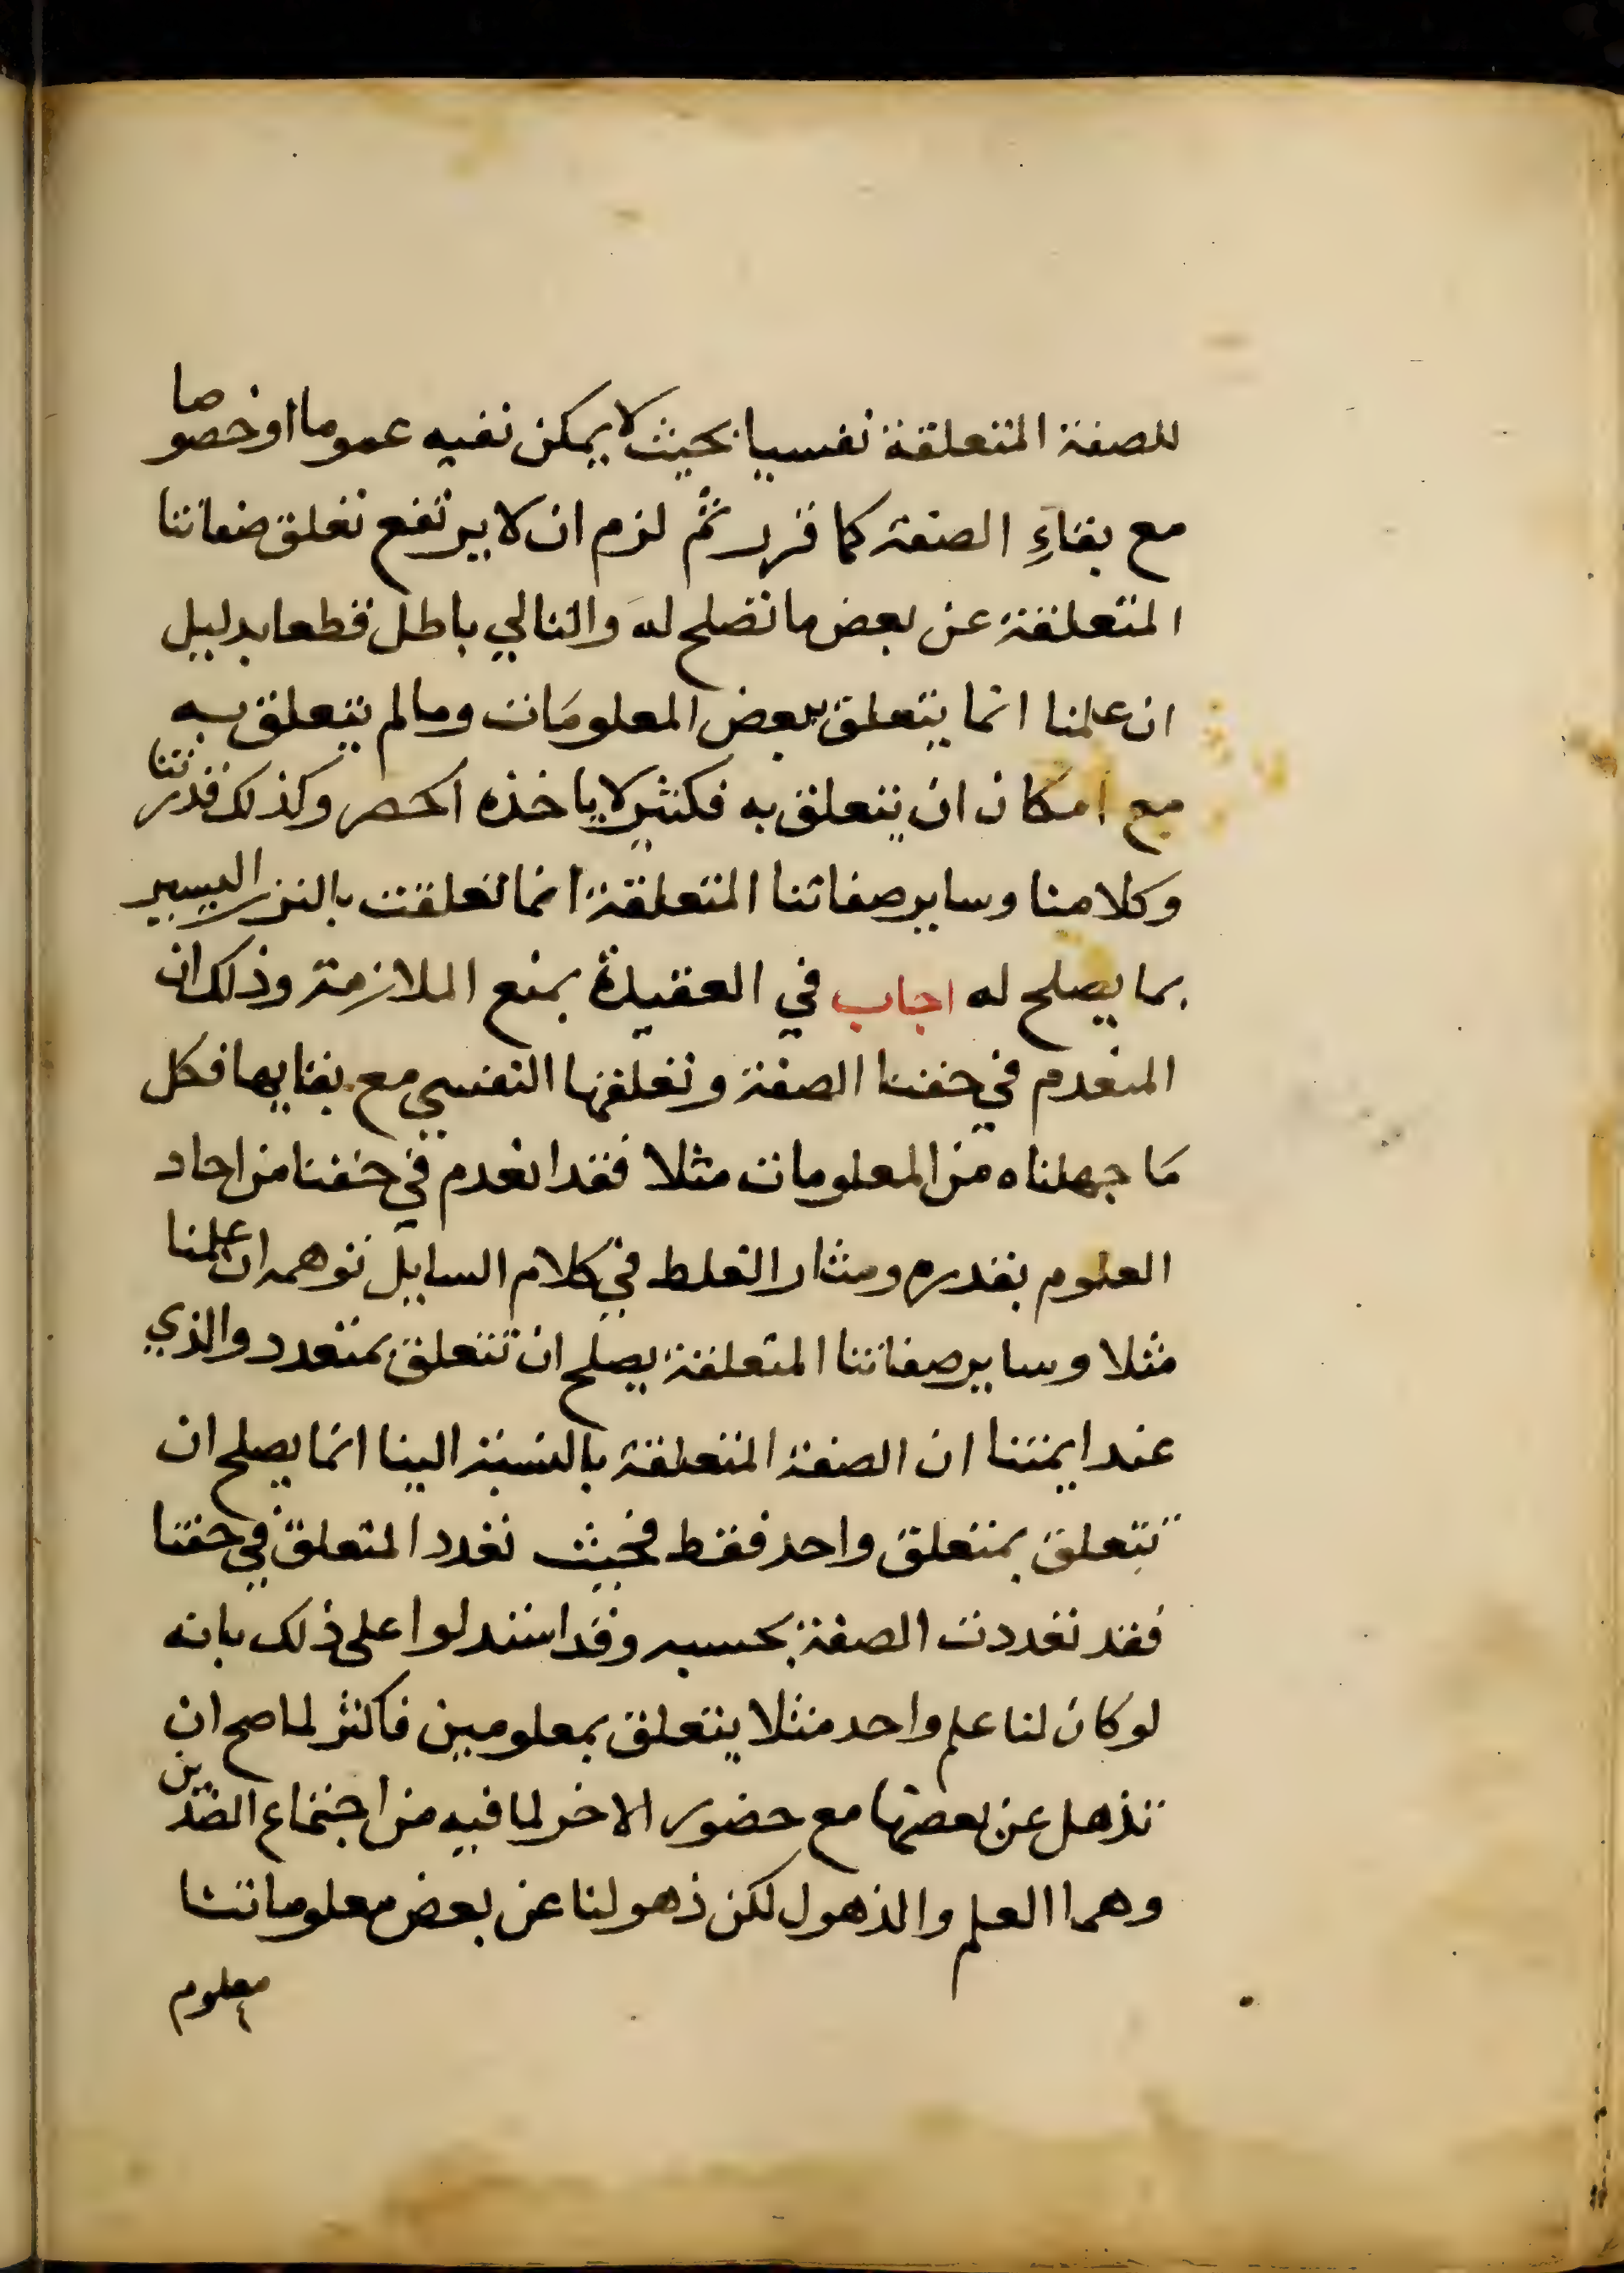 للصفة المتعلقة نفسيا بحيث لا يمكن نفيه عموما او خصوصا
مع بقاءِ الصفة كما قررتم لزم ان لا يرتفع تعلق صفاتنا
المتعلقة عن بعض ما تصلح له والتالي باطل قطعا بدليل
ان علمنا انما يتعلق ببعض المعلومات وما لم يتعلق به
مع امكان ان يتعلق به فكثير لا ياخذه الحصر وكذلك قدرتنا
وكلامنا وساير صفاتنا المتعلقة انما تعلقت بالنزر اليسير
بما يصلح له اجاب في العقيدة بمنع الملازمة وذلك ان
المنعدم في حقنا الصفة وتعلقها النفسي مع بقايها فكل
ما جهلناه من المعلومات مثلا فقد انعدم في حقنا من احاد
العلوم بقدره ومثار الغلط في كلام السايل توهمه ان علمنا
مثلا وساير صفاتنا المتعلقة يصلح ان تتعلق بمتعدد والذي
عند ايمتنا ان الصفة المتعلقة بالنسبة الينا انما يصلح ان
تتعلق بمتعلق واحد فقط فحيث تعدد المتعلق في حقنا
فقد تعددت الصفة بحسبه وقد استدلوا على ذلك بانه
لو كان لنا علم واحد مثلا يتعلق بمعلومين فاكثر لما صح ان
نذهل عن بعضها مع حضور الاخر لما فيه من اجتماع الضدين
وهما العلم والذهول لكن ذهولنا عن بعض معلوماتنا
معلوم